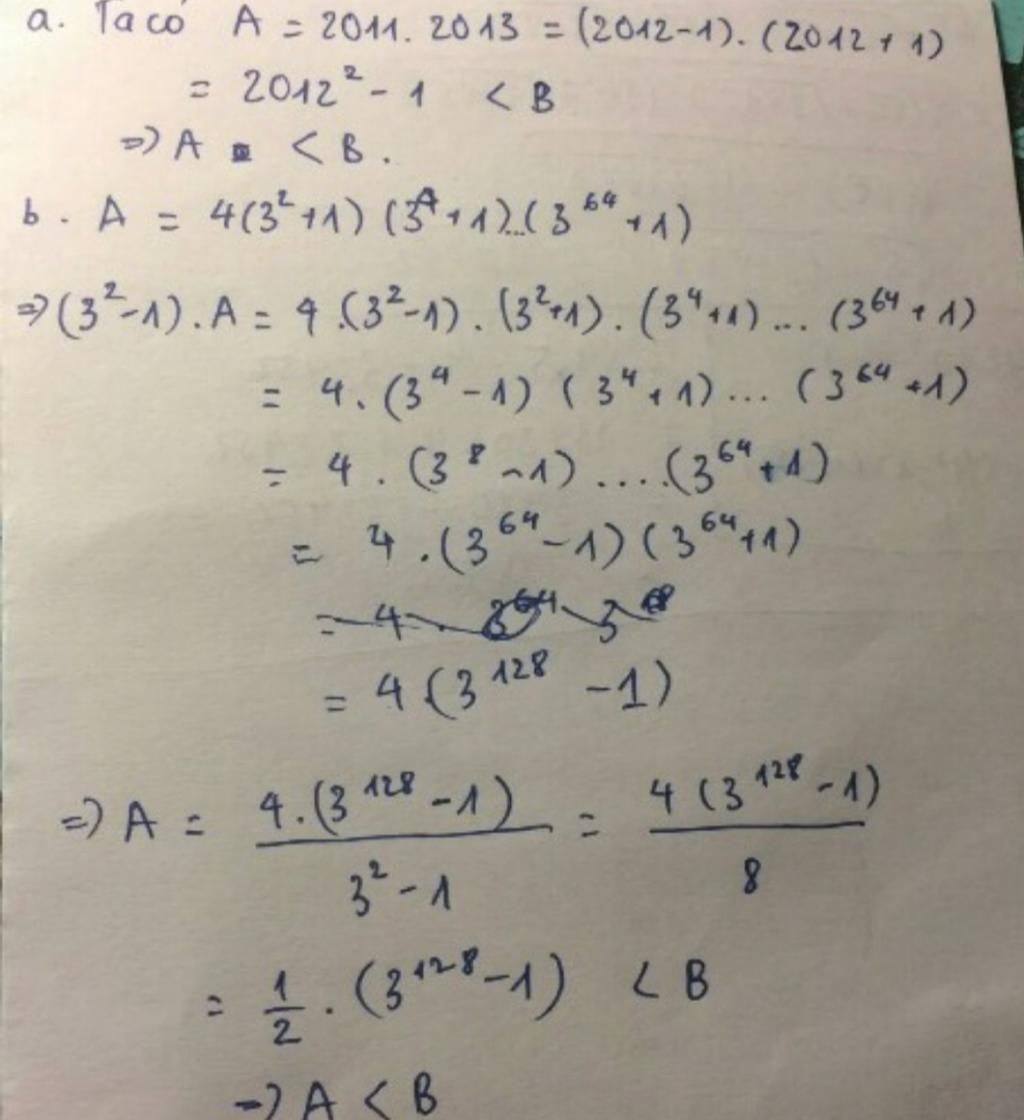 a. Ta có A = 2011. 2013 = (2012-1). (2012 + 1)
= 2012² - 1 < B
=> A < B.
b. A = 4(3²+1) (3⁴+1)...(3⁶⁴+1)
=> (3²-1). A = 4.(3²-1). (3²+1). (3⁴+1)... (3⁶⁴+1)
= 4. (3⁴-1) (3⁴+1)... (3⁶⁴+1)
= 4. (3⁸-1)....(3⁶⁴+1)
= 4.(3⁶⁴-1)(3⁶⁴+1)
= 4(3¹²⁸ - 1)
=> A = 4.(3¹²⁸-1) / 3²-1 = 4(3¹²⁸-1) / 8
= 1/2 . (3¹²⁸-1) < B
=> A < B